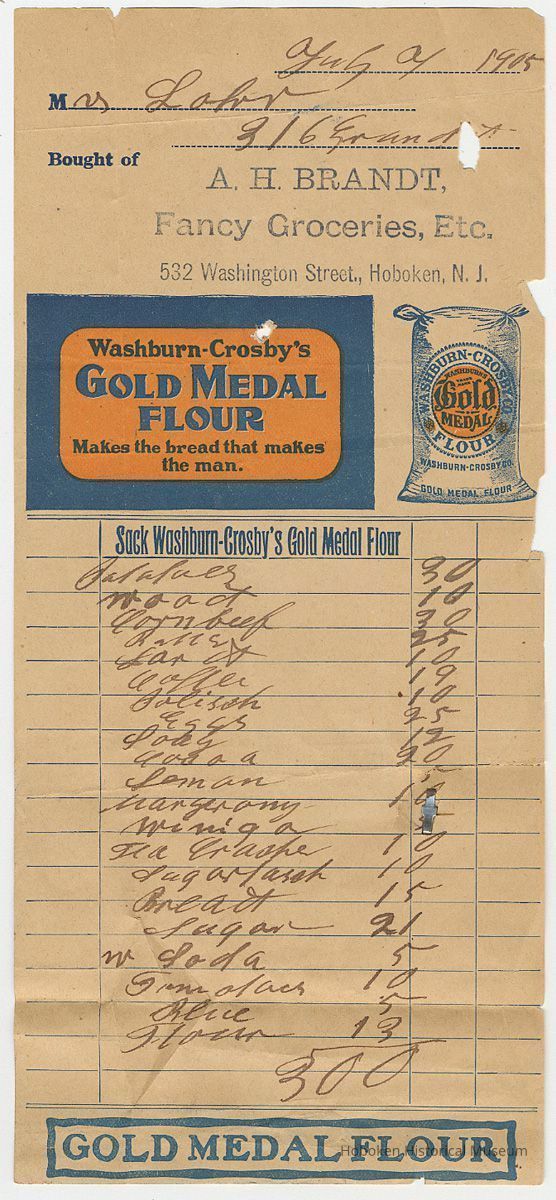 July 7 1905
Mrs Lohr
316 Grand st
Bought of
A. H. BRANDT,
Fancy Groceries, Etc.
532 Washington Street., Hoboken, N. J.
Washburn-Crosby's
GOLD MEDAL
FLOUR
Makes the bread that makes
the man.
WASHBURN-CROSBY CO.
WASHBURN'S
Gold
MEDAL
FLOUR
WASHBURN-CROSBY CO.
GOLD MEDAL FLOUR
Sack Washburn-Crosby's Gold Medal Flour
30
wood 10
Cornbeef 30
25
Lard 10
Coffee 19
Polisch 10
Eggs 25
Soap 12
Cocoa 20
Lemon
10
winiga 5
Tea 10
10
Breatt 15
Sugar 21
w Soda 5
Tomatoes 10
Blue 5
Flour 13
300
GOLD MEDAL FLOUR
Hoboken Historical Museum